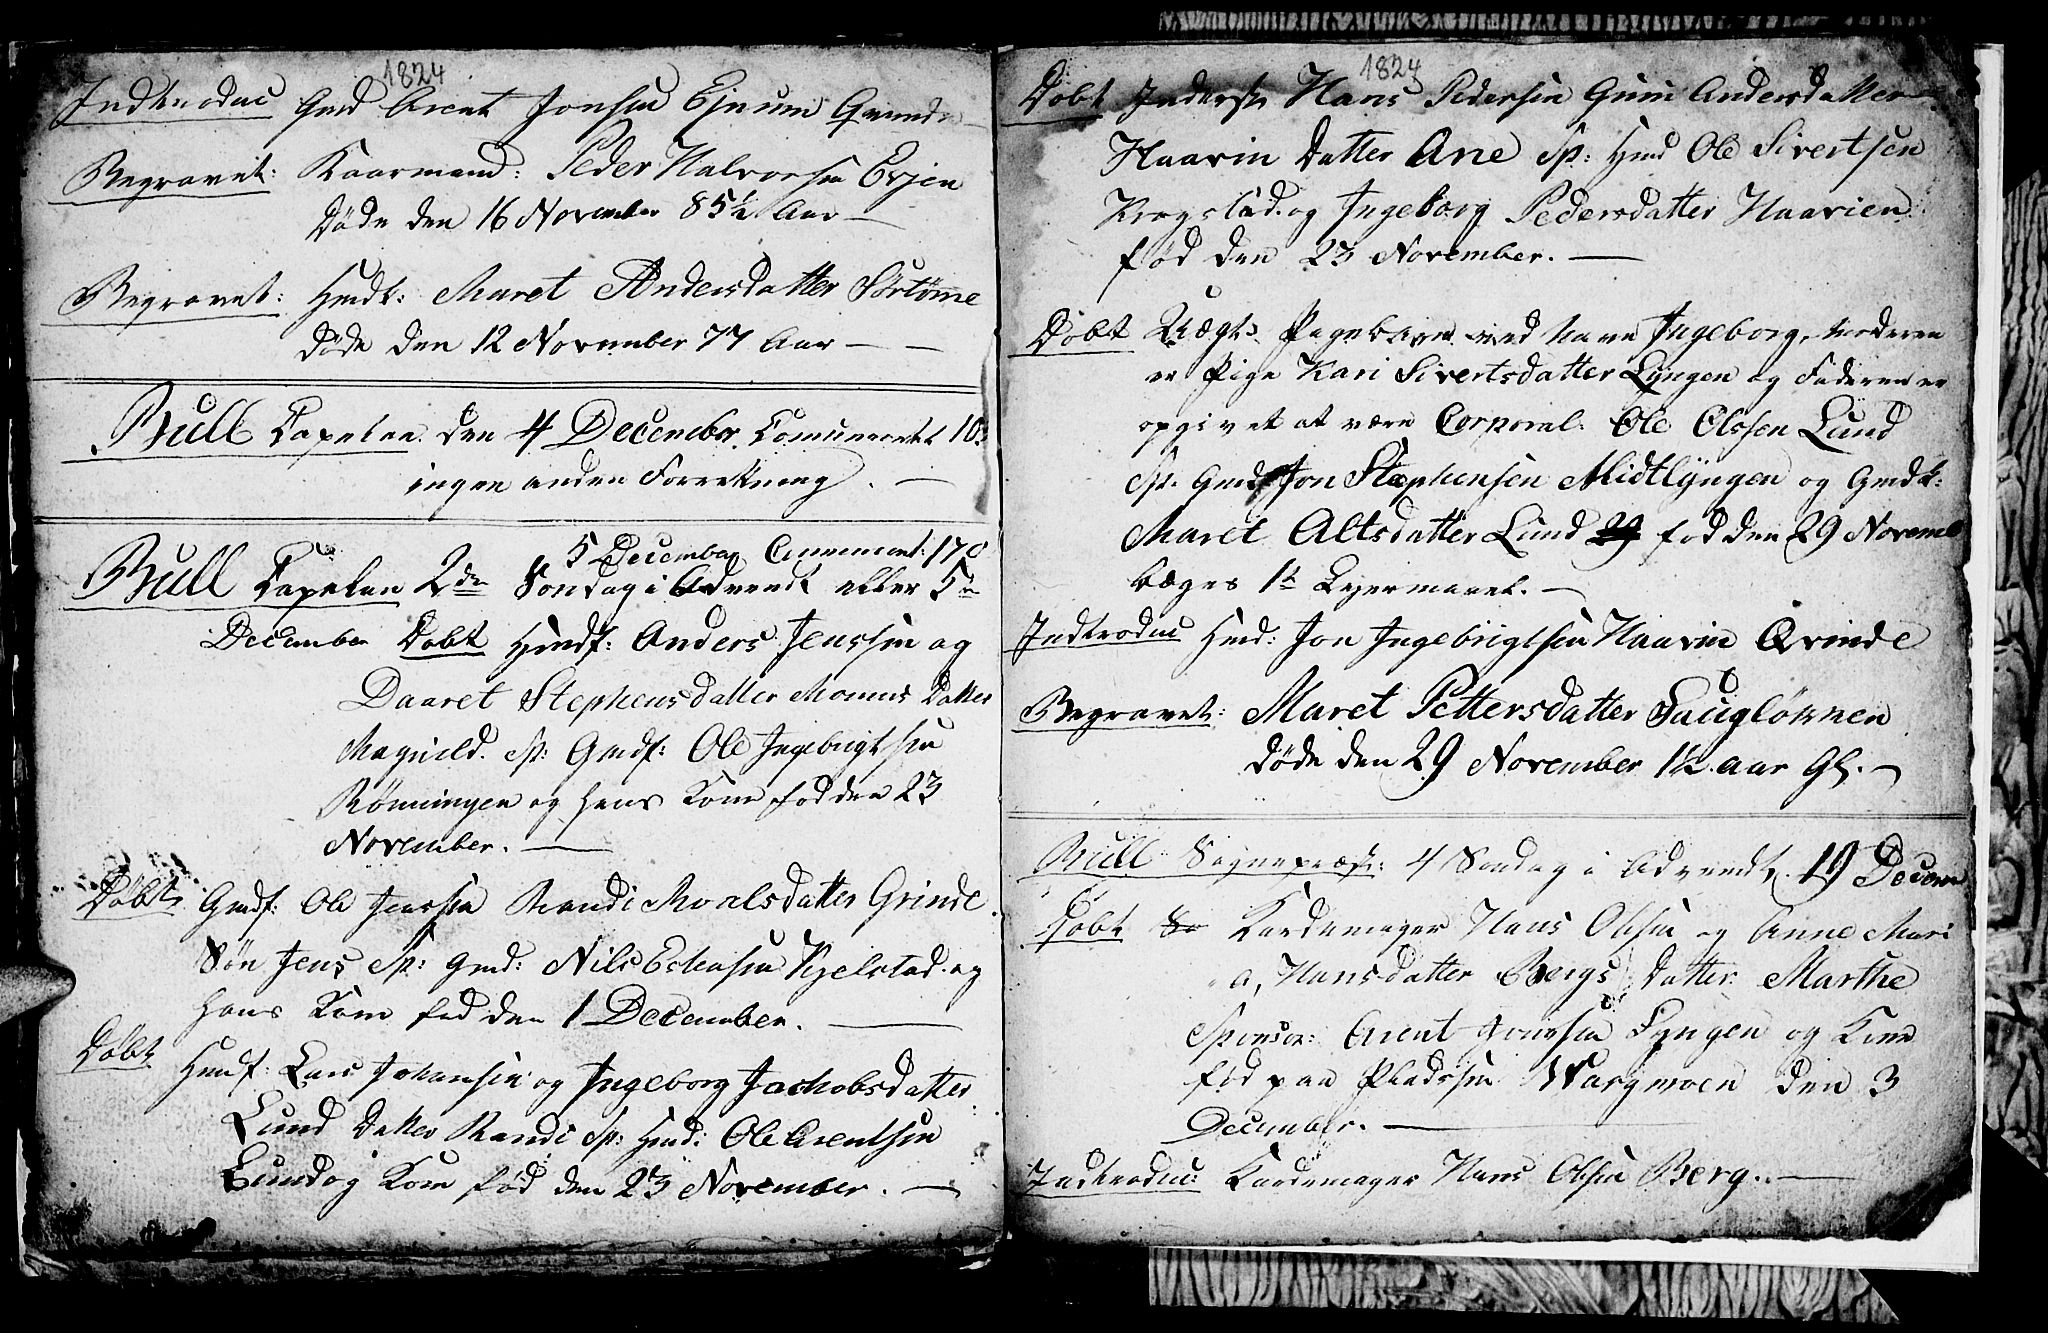 1824
Indtroduc Gmd Arent Jonsen Ejnum Qvinde
Begravet: Kaarmand: Peder Halvorsen Evjen
Døde den 16 November 85½ Aar —
Begravet: Hmdk: Maret Andersdatter Sørtømme
Døde den 12 November 77 Aar — —
Bull Capelan den 4 December Comuneeret 10
ingen anden Forretning. —
5 December Comuneert: 170
Bull Capelan 2den Søndag i Advendt eller 5te
December Døbt Hmdf: Anders Jenssen og
Maret Stephensdatter Momus Datter
Magnild. Sp: Gmdf: Ole Ingebrigtsen
Rønningen og hans Kone fød den 23
November. —
Døbt Gmdf: Ole Jenssen Randi Moalsdatter Grinde
Søn Jens Sp: Gmd: Nils Estensen Kjelstad og
hans Kone fød den 1 December. —
Døbt Hmdf: Lars Johansen og Ingeborg Jachobsdatter
Lund Datter Randi Sp: Hmd: Ole Arentsen
Lund og Kone fød den 23 November. —
1824
Døbt Inderst Hans Pedersen Guru Andersdatter
Haavin Datter Ane Sp: Hmd Ole Sivertsen
Krogstad og Ingeborg Pedersdatter Haavien
fød den 23 November. —
Døbt Uægte Pigebarn ved Navn Ingeborg, Moderen
er Pige Kari Sivertsdatter Lyngen og Faderen er
opgivet at være Corporal Ole Olssen Lund
Sp. Gmd Jon Stephensen Midtlyngen og Gmdk:
Maret Altsdatter Lund 29 fød den 29 Novemb
begges 1te Lejermaael. —
Indtroduc Hmd: Jon Ingebrigtsen Haavin Qvinde
Begravet: Maret Pettersdatter Haugløkken
Døde den 29 November 1½ aar Gl. —
Bull Sognepræst: 4 Søndag i Advendt 19 Decem
Døbt So Kardemager Hans Olsen og Anne Mari
a, Hansdatter Bergs Datter: Marthe
Sponsor: Arent Jonssen Lyngen og Kone
fød paa Pladssen Wargmoen den 3
December. —
Indtroduc: Kardemager Hans Olsen Berg. —